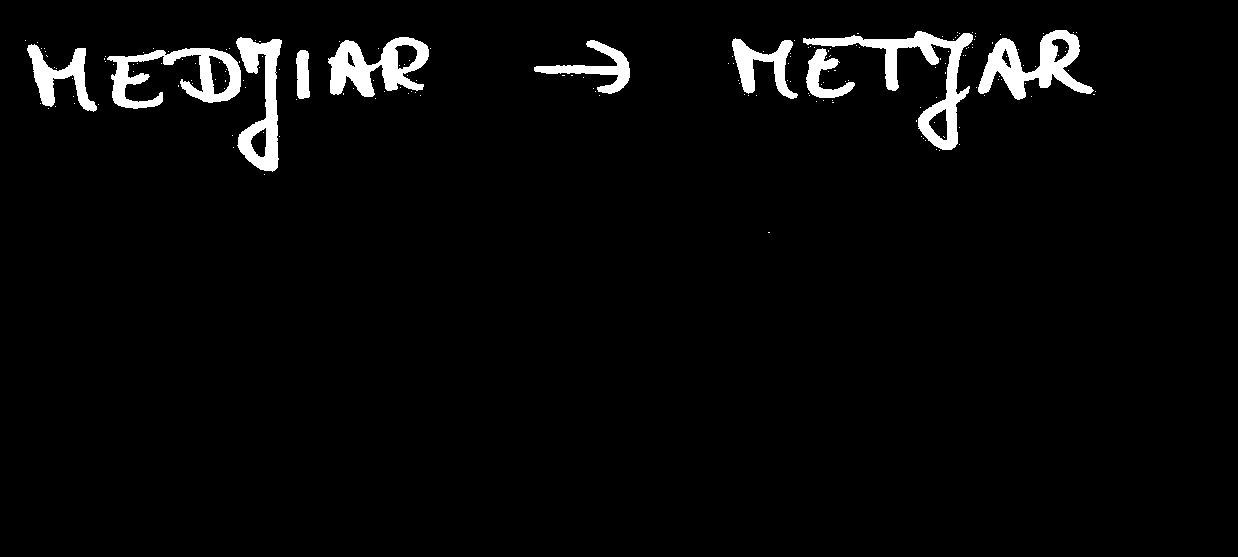 MEDJIAR → METJAR